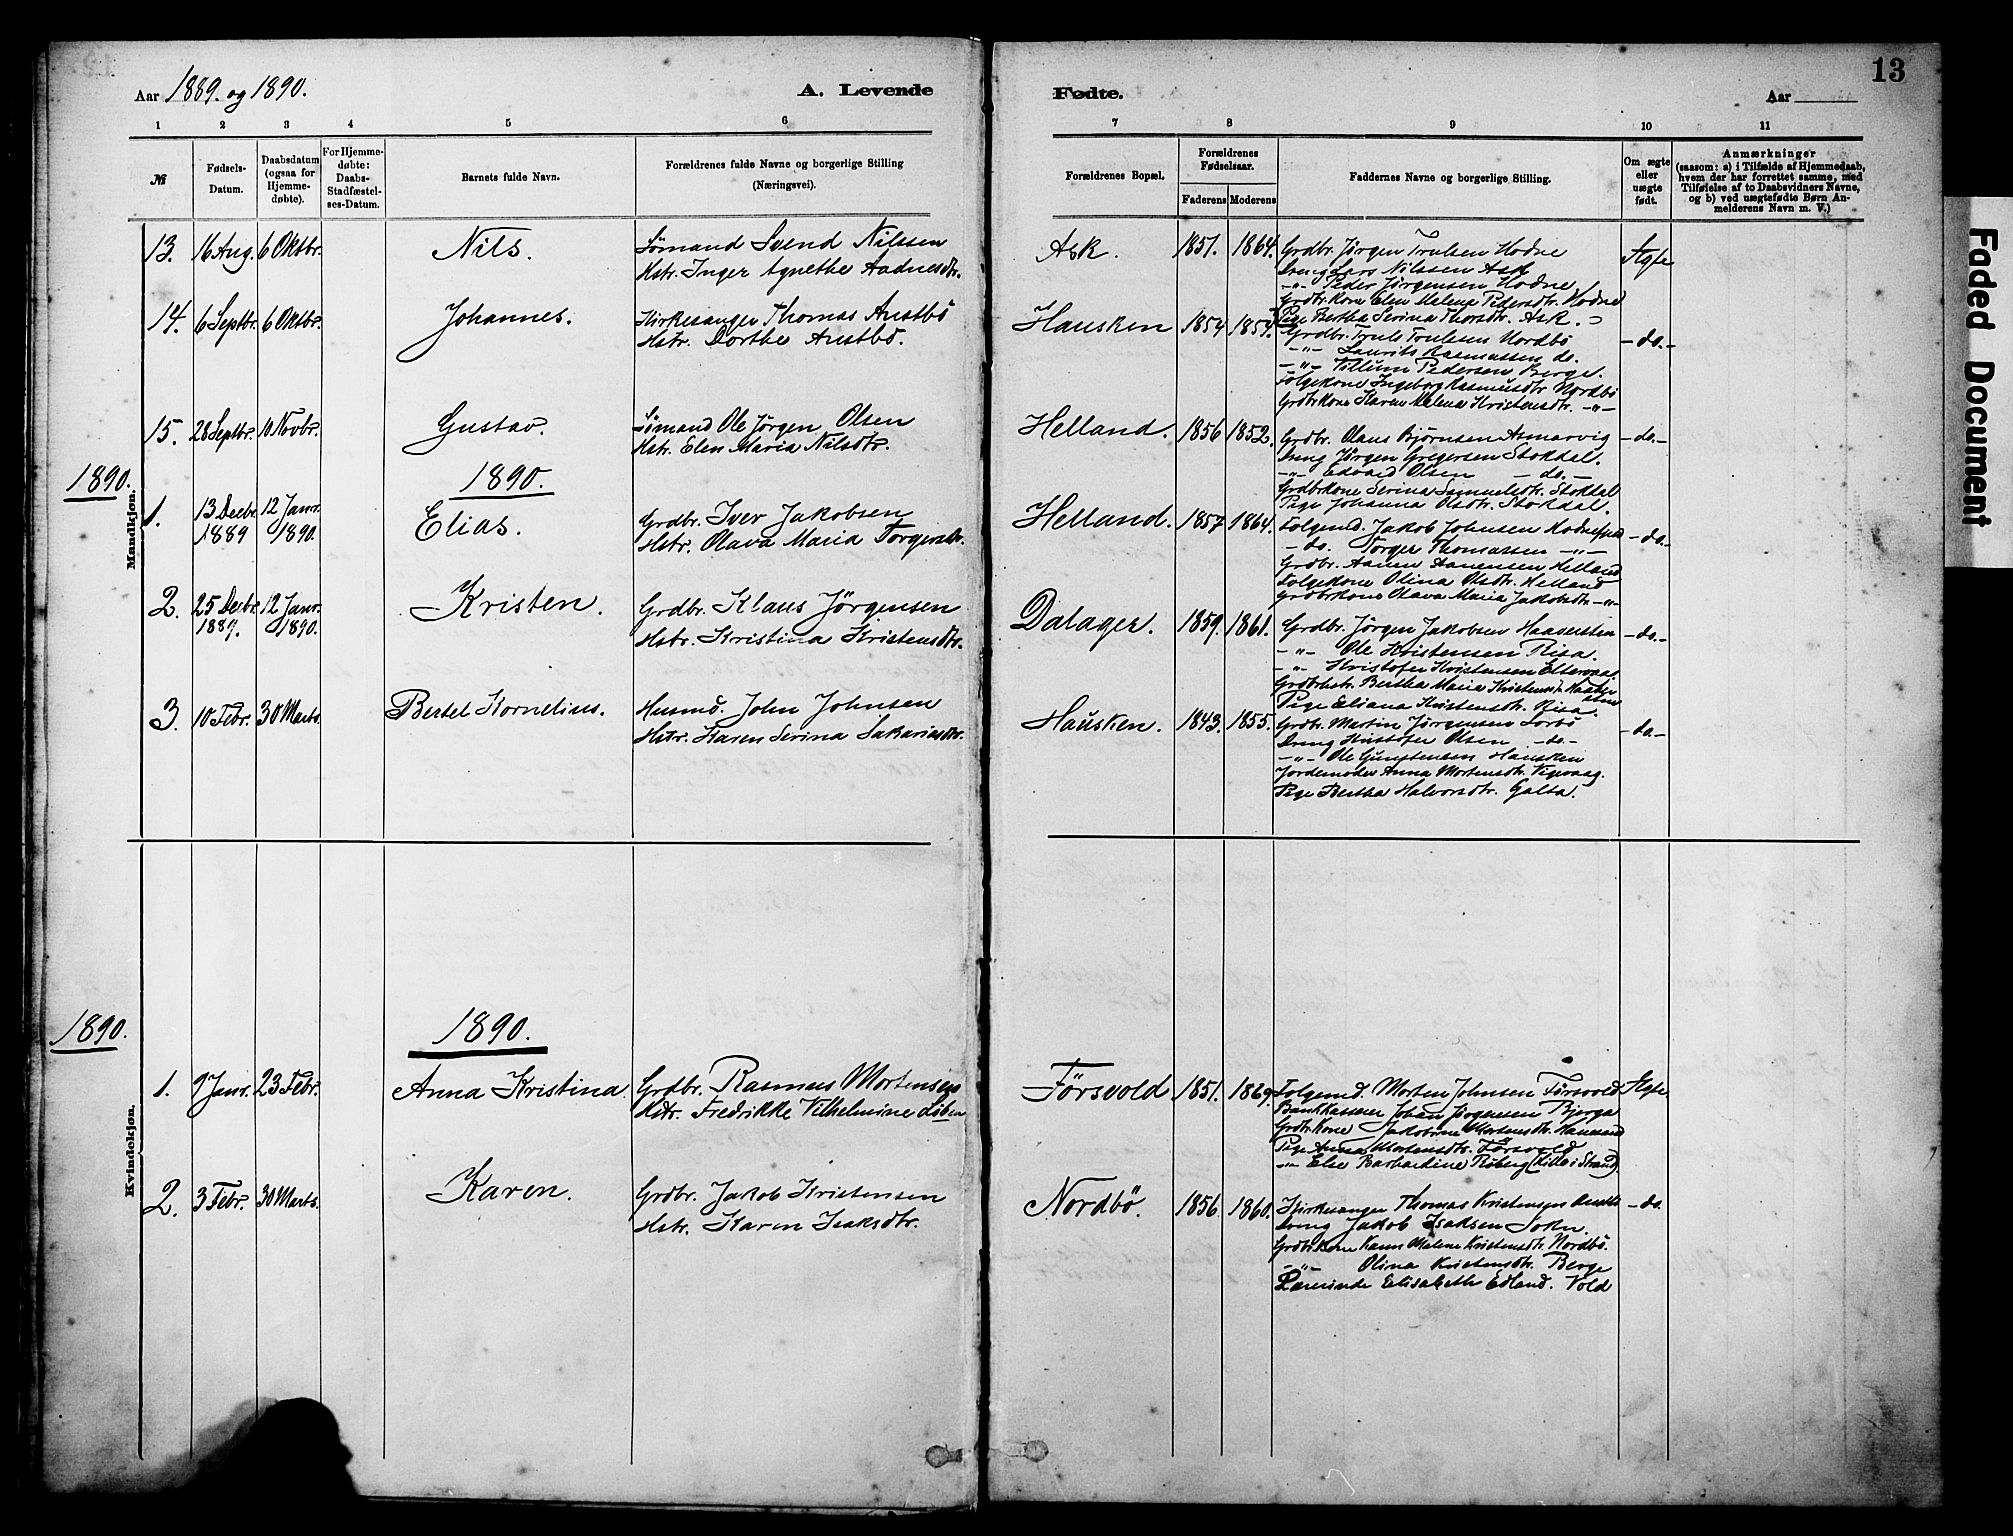 13
Aar 1889. og 1890.
A. Levende
Fødte.
Aar
1 2 3 4 5 6
7 8 9 10 11
№
Fødsels-
Datum.
Daabsdatum
(ogsaa for
Hjemme-
døbte).
For Hjemme-
døbte:
Daabs-
Stadfæstel-
ses-Datum.
Barnets fulde Navn.
Forældrenes fulde Navne og borgerlige Stilling
(Næringsvei).
Forældrenes Bopæl.
Forældrenes
Fødselsaar.
Faderens Moderens
Faddernes Navne og borgerlige Stilling.
Om ægte
eller
uægte
født.
Anmærkninger
(saasom: a) i Tilfælde af Hjemmedaab,
hvem der har forrettet samme, med
Tilføielse af to Daabsvidners Navne,
og b) ved uægtefødte Børn An-
melderens Navn m. V.)
Mandkjøn.
13. 16 Aug. 6 Oktbr. Nils.
Sømand Svend Nilssen
Hstr. Inger Agnethe Aadnesdtr.
Ask. 1851. 1864.
Grdbr. Jørgen Trulsen Hodne
Dreng Lars Nilssen Ask
-"- Peder Jørgensen Hodne
Grdbr.kone Elen Malena Pedersdtr. Hodne
Pige Bertha Serina Thorsdtr. Ask.
Ægte
14. 6 Septbr. 6 Oktbr. Johannes.
Kirkesanger Thomas Austbö
Hstr. Dorthe Austbö.
Hausken 1854 1854.
Grdbr. Truls Trulssen Nordbö
-"- Laurits Rasmussen do.
-"- Villum Pedersen Berge.
Folgekone Ingeborg Rasmusdtr Nordbö
Grdbrkone Karen Malena Kristensdtr. -"-
-do.-
15. 28 Septbr. 10 Novbr. Gustav.
Sømand Ole Jørgen Olsen
Hstr. Elen Maria Nilsdtr.
Helland. 1856 1852.
Grdbr. Olaus Bjørnsen Asmarvig
Dreng Jørgen Gregersen Stokdal.
-"- Edvard Olsen -do.-
Grdbrkone Serina Samuelsdtr. Stokdal
Pige Johanna Olsdtr. Stokdal.
-do.-
1890.
1890.
1. 13 Decbr. 1889 12 Janr. 1890. Elias.
Grdbr. Iver Jakobsen
Hstr. Olava Maria Torgersdtr.
Helland. 1857 1864.
Folgemd. Jakob Johnsen
-do. Torger Thomassen -"-
Grdbr. Aanen Aanensen Helland
Folgekone Olina Olsdtr. Helland
Grdbrkone Olava Maria Jakobsdtr. -"-
-do.-
2. 25 Decbr. 1889. 12 Janr. 1890. Kristen.
Grdbr. Klaus Jörgensen
Hstr. Kristina Kristensdtr.
Dalager. 1859. 1861.
Grdbr. Jörgen Jakobsen Haaversten
-"- Ole Kristensen Risa.
-"- Kristofer Kristensen
Grdbrhstr. Bertha Maria Kristensdtr.
Pige Eliana Kristensdtr. Risa.
-do.-
3. 10 Febr. 30 Marts. Bertel Kornelius.
Husmd. John Johnsen
Hstr. Karen Serina Sakariasdtr.
Hausken. 1843. 1855.
Grdbr. Martin Jörgensen Sorbö
Dreng Kristofer Olsen -do.-
-"- Ole Hausken
Jordemoder Anna Mortensdtr. Vigevaag.
Pige Bertha Halvorsdtr. Galta.
-do.-
1890.
1890.
Kvindekjøn.
1. 9 Janr. 23 Febr. Anna Kristina
Grdbr. Rasmus Mortensen
Hstr. Fredrikke Vilhelmine
Försvold 1851. 1869.
Folgemd. Morten Johnsen Försvold
Bankkasserer Johan Jörgensen Bjerga
Grdbr.kone Jakobine Mortensdtr.
Pige Anna Mortensdtr. Försvold
-"- Else Barbardine Röberg (Lille i Strand)
Ægte.
2. 3 Febr. 30 Marts. Karen.
Grdbr. Jakob Kristensen
Hstr. Karen Isaksdtr.
Nordbö. 1856 1860.
Kirkesanger Thomas Kristensen Austbö
Dreng Jakob Isaksen Sokn.
Grdbrkone Karen Malene Kristensdtr. Nordbö.
-"- Olina Kristensdtr. Berge
Lærerinde Elisabeth Edland. Vold
-do.
Faded Document